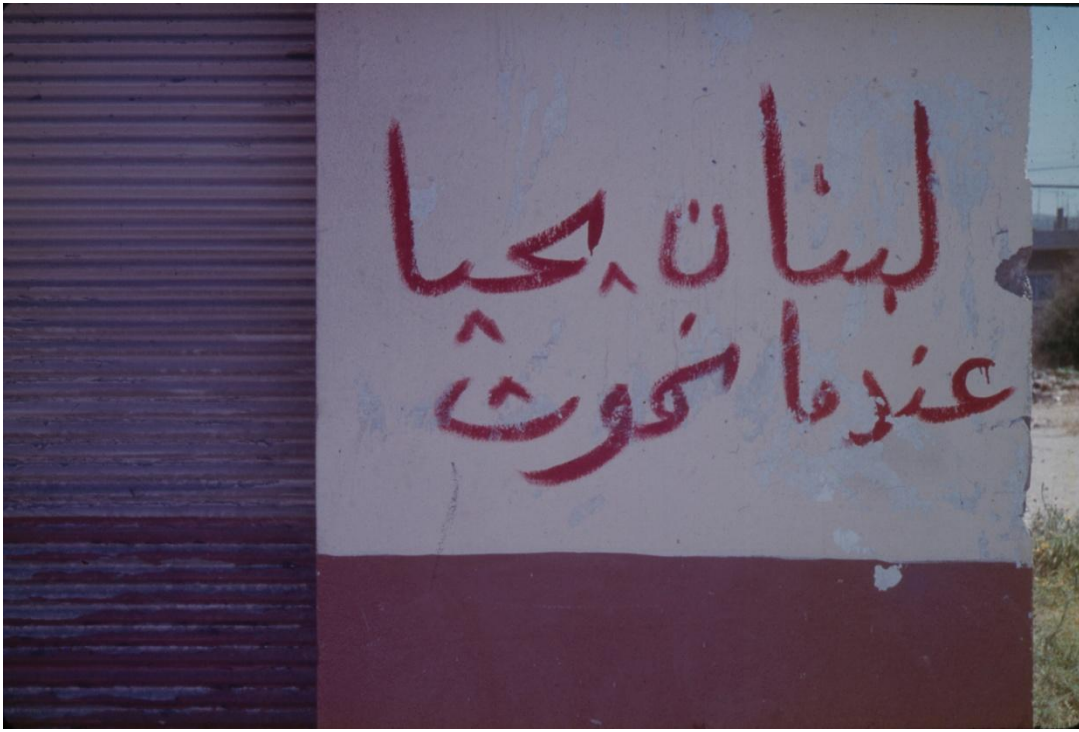 لبنان يحيا
عندما نموت